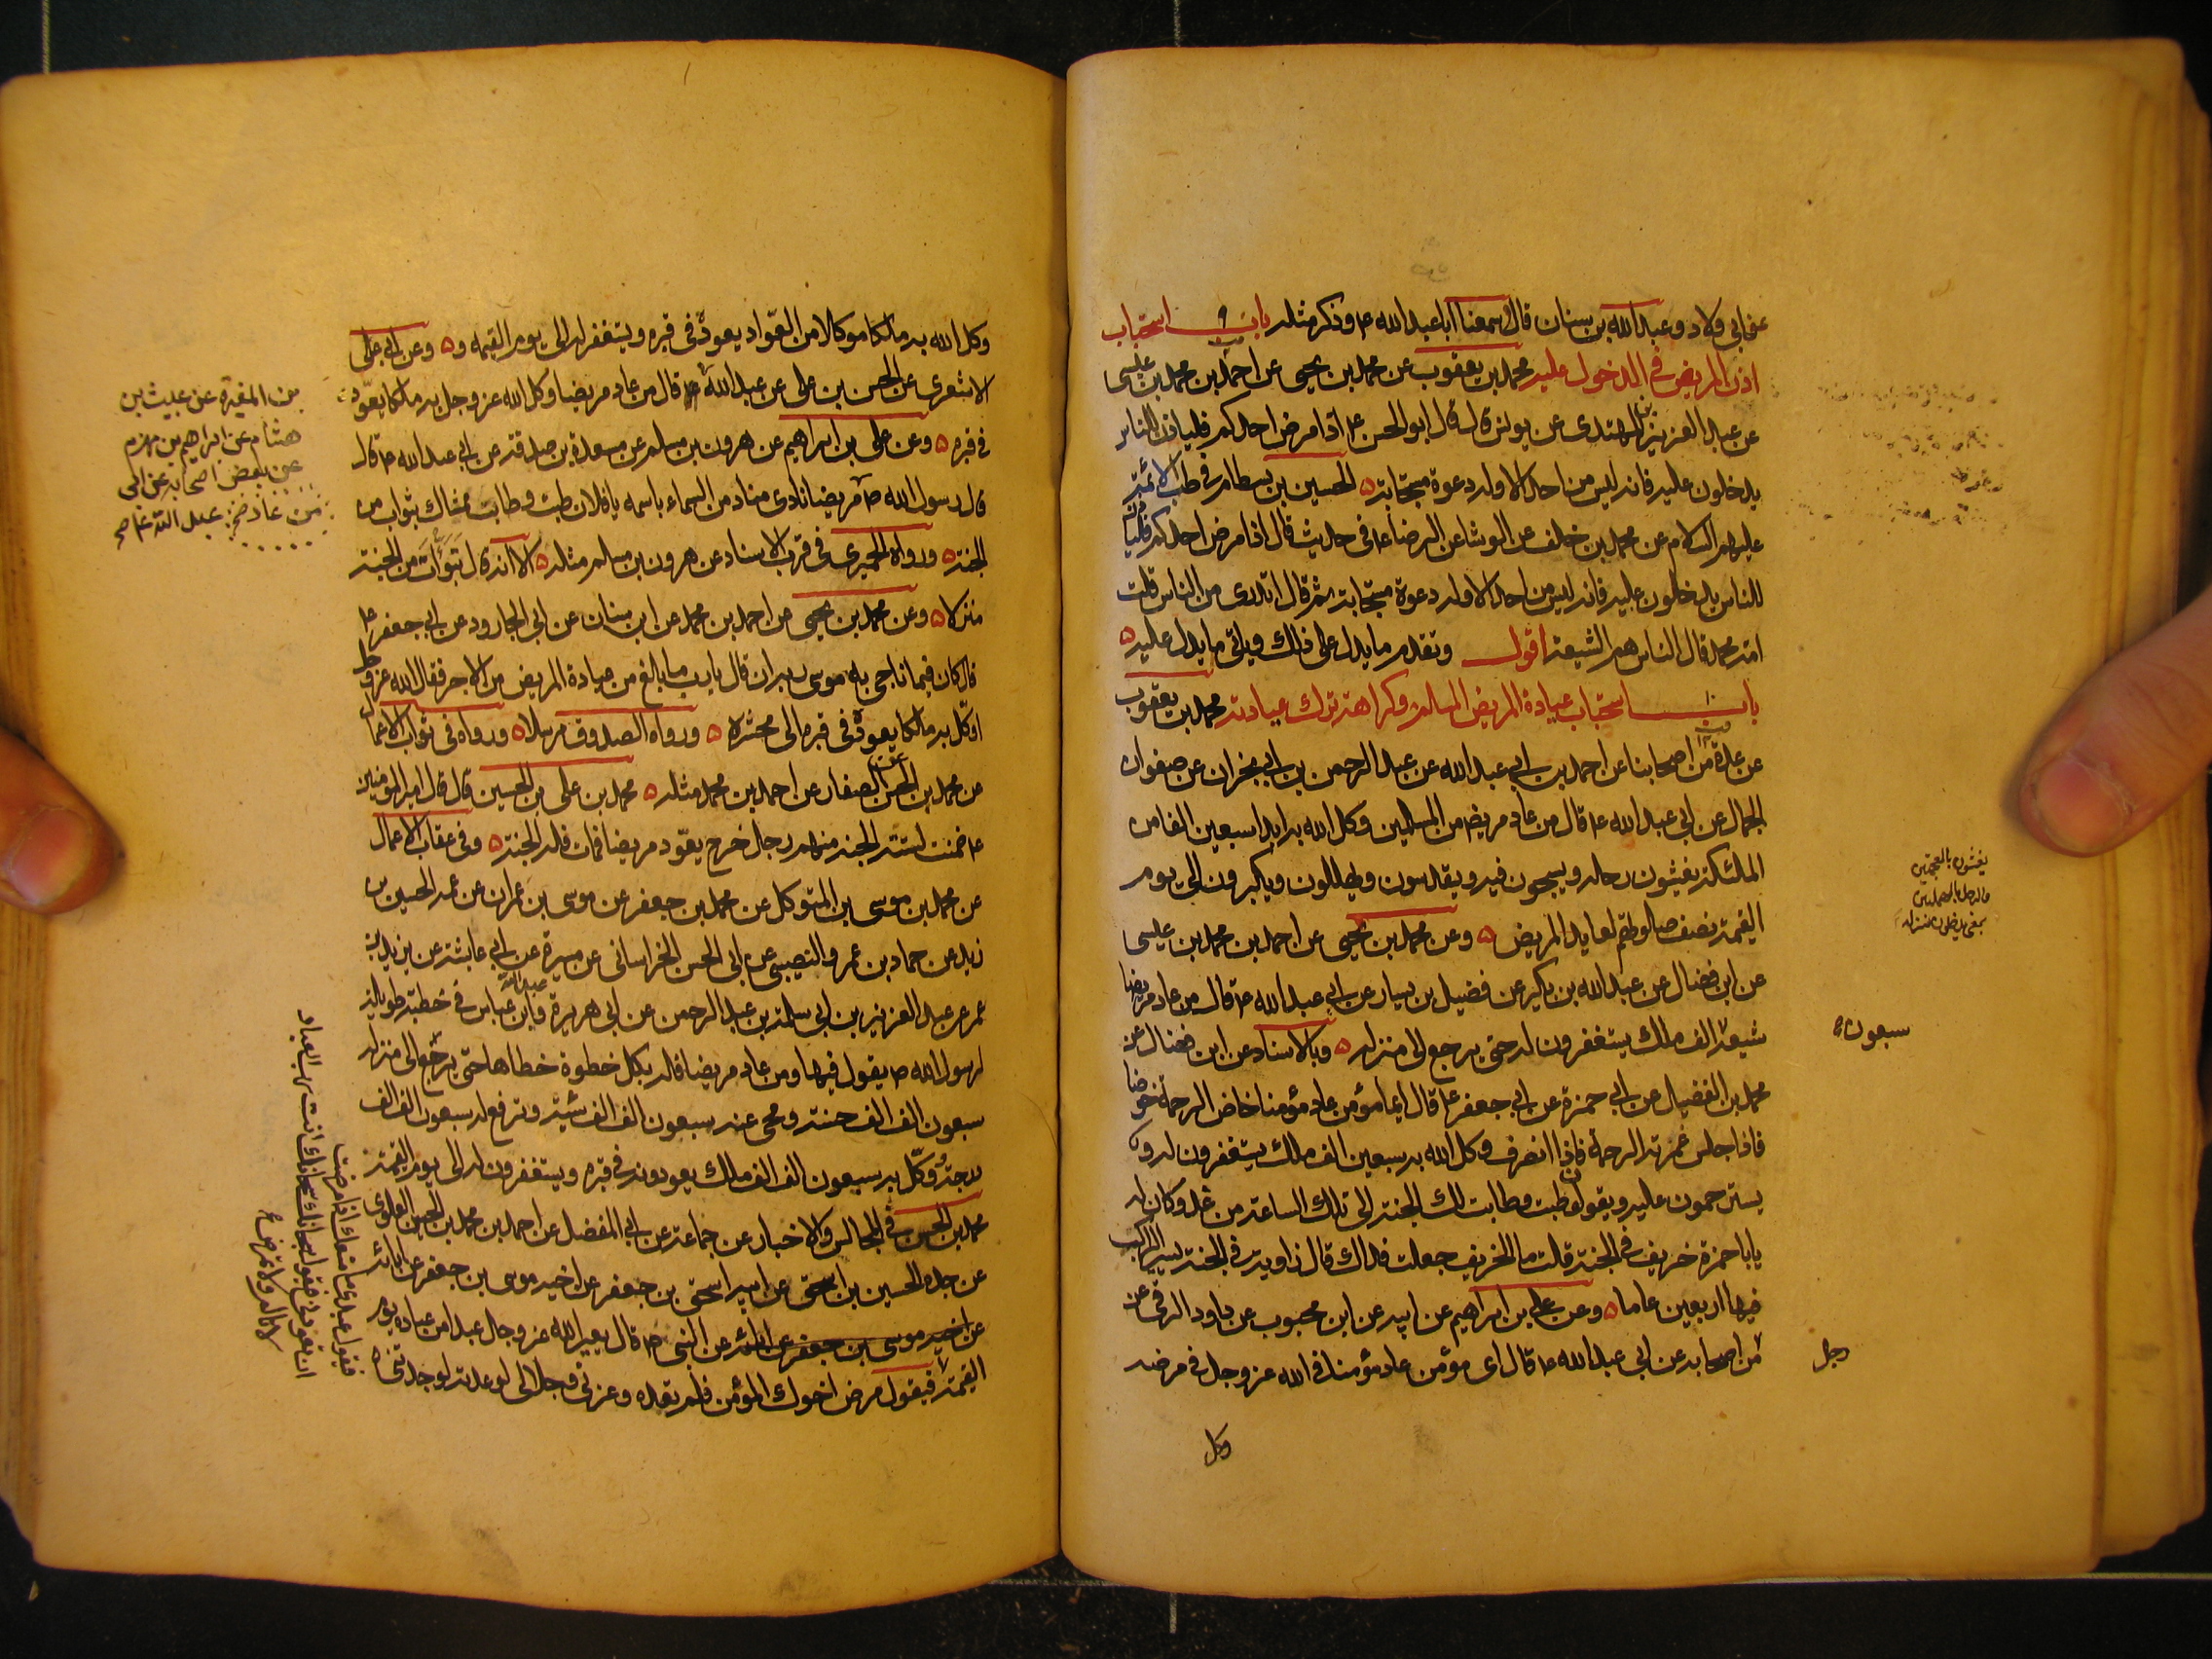 عن ابى ولاد وعبد الله بن سنان قال وسمعنا ابا عبد الله ع وذكر مثله باب استحباب
اذن المريض فى الدخول عليه محمد بن يعقوب عن محمد بن يحيى عن احمد بن محمد بن عيسى
عن عبد العزيز بن المهتدى عن يونس قال قال ابو الحسن ع اذا مرض احدكم فلياذن للناس
يدخلون عليه فانه ليس من احد الا وله دعوة مستجابة ۵ الحسين بن بسطام فى طب الائمة
عليهم السلام عن محمد بن خلف عن الوشا عن الرضا ع فى حديث قال اذا مرض احدكم فلياذن
للناس يدخلون عليه فانه ليس من احد الا وله دعوة مستجابة ثم قال اتدرى من الناس قلت
امة محمد قال الناس هم الشيعة اقول وتقدم ما يدل على ذلك وياتى ما يدل عليه ۵
باب ١٠ استحباب عيادة المريض المسلم وكراهة ترك عيادته محمد بن يعقوب
عن عدة من اصحابنا عن احمد بن ابى عبد الله عن عبد الرحمن بن ابى نجران عن صفوان
الجمال عن ابى عبد الله ع قال من عاد مريضا من المسلمين وكل الله به ابدا سبعين الفا من
الملئكة يغشون رحله ويسبحون فيه ويقدسون ويهللون ويكبرون الى يوم
القيمة نصف صلوتهم لعايد المريض ۵ وعن محمد بن يحيى عن احمد بن محمد بن عيسى
عن ابن فضال عن عبد الله بن بكير عن فضيل بن يسار عن ابى عبد الله ع قال من عاد مريضا
شيعه الف ملك يستغفرون له حتى يرجع الى منزله ۵ وبالاسناد عن ابن فضال عن
محمد بن الفضيل عن ابى حمزة عن ابى جعفر ع قال ايما مؤمن عاد مؤمنا خاض الرحمة خوضا
فاذا جلس غمرته الرحمة فاذا انصرف وكل الله به سبعين الف ملك يستغفرون له و
يسترحمون عليه ويقولون طبت وطابت لك الجنة الى تلك الساعة من غد وكان له
يا با حمزة خريف فى الجنة قلت ما الخريف جعلت فداك قال زاوية فى الجنة يسير الراكب
فيها اربعين عاما ۵ وعن على بن ابراهيم عن ابيه عن ابن محبوب عن داود الرقى عن
من اصحابه عن ابى عبد الله ع قال اى مؤمن عاد مؤمنا فى الله عز وجل فى مرضه
وكل
يغشون بالمعجمتين
والرحل بالمهملتين
بمعنى يدخلون منزله
سبعون
رجل
وكل الله به ملكا موكلا من العواد يعوده فى قبره ويستغفر له الى يوم القيمه و ۵ وعن ابى على
الاشعرى عن الحسن بن على عن عبد الله قال من عاد مريضا وكل الله عز وجل به ملكا يعوده
فى قبره ۵ وعن على بن ابراهيم عن هرون بن مسلم عن مسعدة بن صدقة عن ابى عبد الله ع قال
قال رسول الله ص من عاد مريضا نادى مناد من السماء باسمه يا فلان طبت وطاب ممشاك بثواب من
الجنة ۵ ورواه الحميرى فى قرب الاسناد عن هرون بن مسلم مثله ۵ الا انه قال تبوأت من الجنة
منزلا ۵ وعن محمد بن يحيى عن احمد بن محمد عن ابن سنان عن ابى الجارود عن ابى جعفر ع
قال كان فيما ناجى به موسى ربه ان قال يا رب ما بلغ من عيادة المريض من الاجر فقال الله عز وجل
اوكل به ملكا يعوده فى قبره الى محشره ۵ ورواه الصدوق مرسلا ۵ ورواه فى ثواب الاعمال
عن محمد بن الحسن عن الصفار عن احمد بن محمد مثله ۵ محمد بن على بن الحسين قال قال امير المومنين
ع ضمنت لستة الجنة منهم رجل خرج يعود مريضا فمات فله الجنة ۵ وفى عقاب الاعمال
عن محمد بن موسى بن المتوكل عن محمد بن جعفر عن موسى بن عمران عن عمه الحسين بن
زيد عن حماد بن عمرو النصيبى عن ابى الحسن الخراسانى عن ميسرة عن ابى عايشة عن يزيد بن
عمر عن عبد العزيز بن ابى سلمة بن عبد الرحمن عن ابى هريرة وعبد الله بن عباس فى خطبة طويلة
لرسول الله ص يقول فيها ومن عاد مريضا فله بكل خطوة خطاها حتى يرجع الى منزله
سبعون الف الف حسنة ومحى عنه سبعون الف الف سيئة وترفع له سبعون الف الف
درجة ووكل به سبعون الف الف ملك يعودونه فى قبره ويستغفرون له الى يوم القيمة
محمد بن الحسن فى المجالس والاخبار عن جماعة عن ابى المفضل عن احمد بن محمد بن الحسين العلوى
عن جده الحسين بن اسحق عن ابيه اسحق بن جعفر عن اخيه موسى بن جعفر عن ابائه
عن اخيه موسى بن جعفر عن ابائه عن النبى ص قال يعير الله عز وجل عبدا من عباده يوم
القيمة فيقول مرض اخوك المؤمن فلم تعده وعزتى وجلالى لو عدته لوجدتنى
بن المغيرة عن عبيس بن
هشام عن ابراهيم بن مهزم
عن بعض اصحابه عن ابى
عبد الله ع
فيقول عبدى ما منعك اذا مرضت
ان تعودنى فيقول سبحانك سبحانك انت رب العباد
لا تالم ولا تمرض